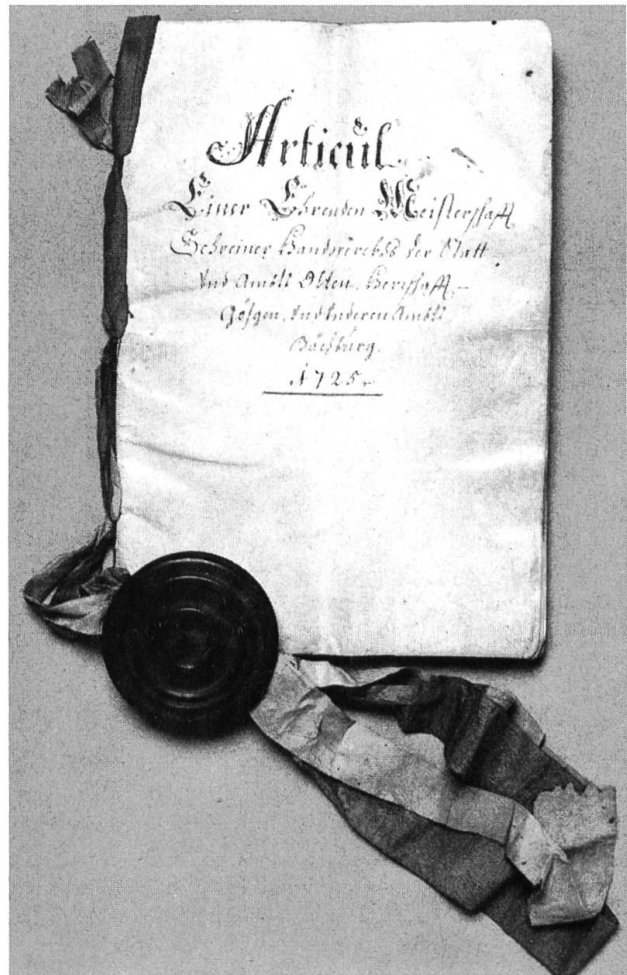 Articul
Einer Ehrenden Meisterschafft
Schreiner Handwerckhs der Statt
Vnd Ambtt Olten, Herrschafft
Gösgen, Vnd Anderen Ambtt
Bächburg.
1725.